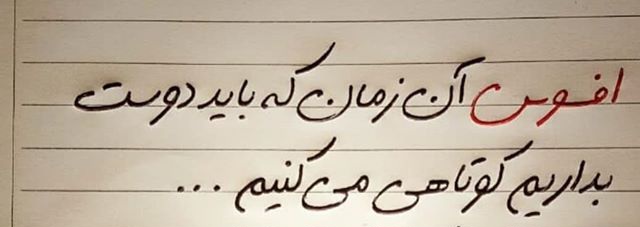 افسوس آن زمان که باید دوست
بداریم کوتاهی می کنیم ...